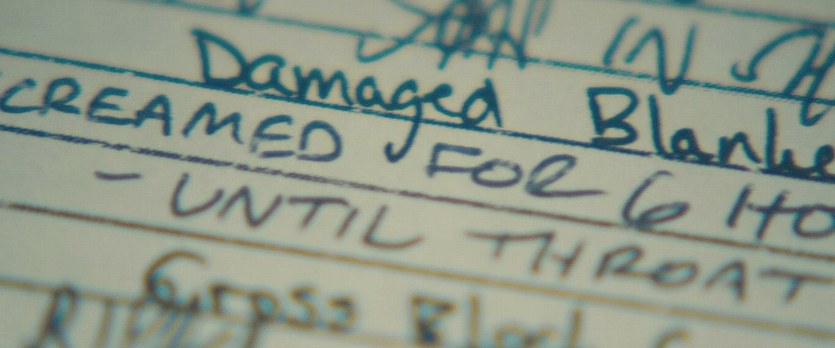 IN
Damaged Blanke
CREAMED FOR 6 HO
- UNTIL THROAT
Gross